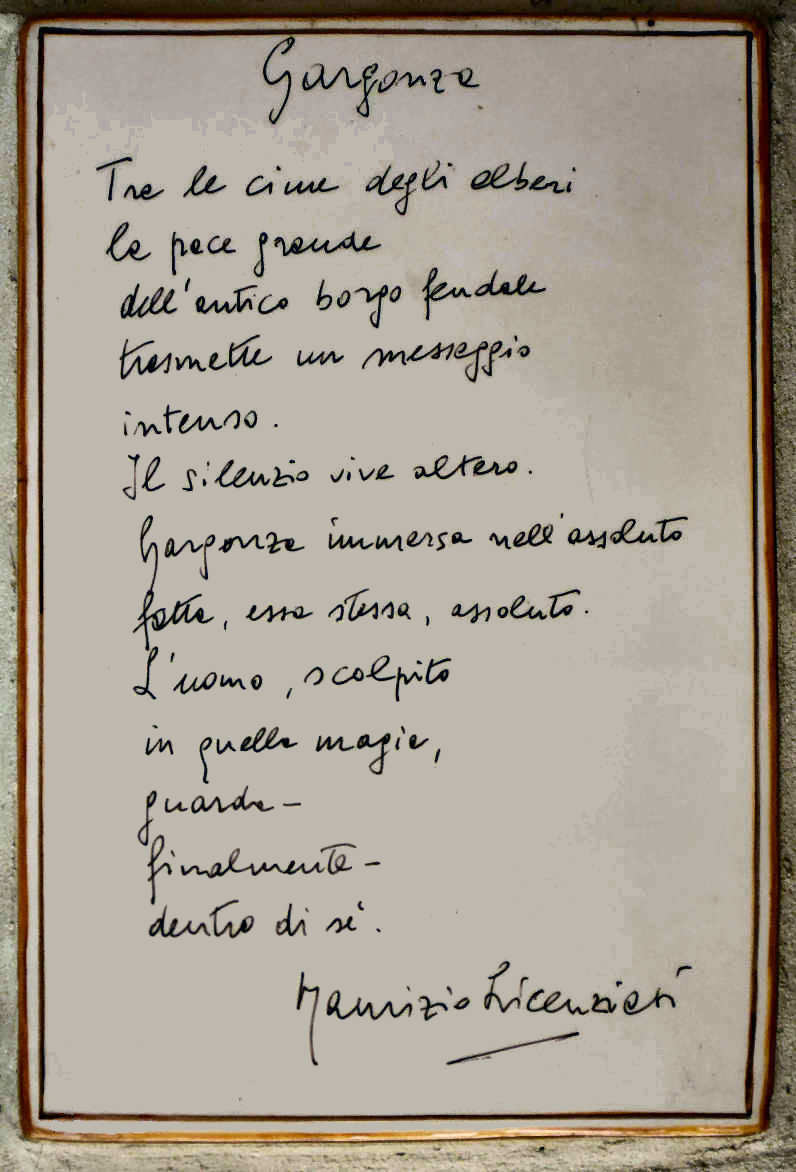 Gargonza
Tra le cime degli alberi
la pace grande
dell'antico borgo feudale
trasmette un messaggio
intenso.
Il silenzio vive altero.
Gargonza immersa nell'assoluto
fatta, essa stessa, assoluto.
L'uomo, scolpito
in quella magia,
guarda –
finalmente –
dentro di sé.
Maurizio Licenziati